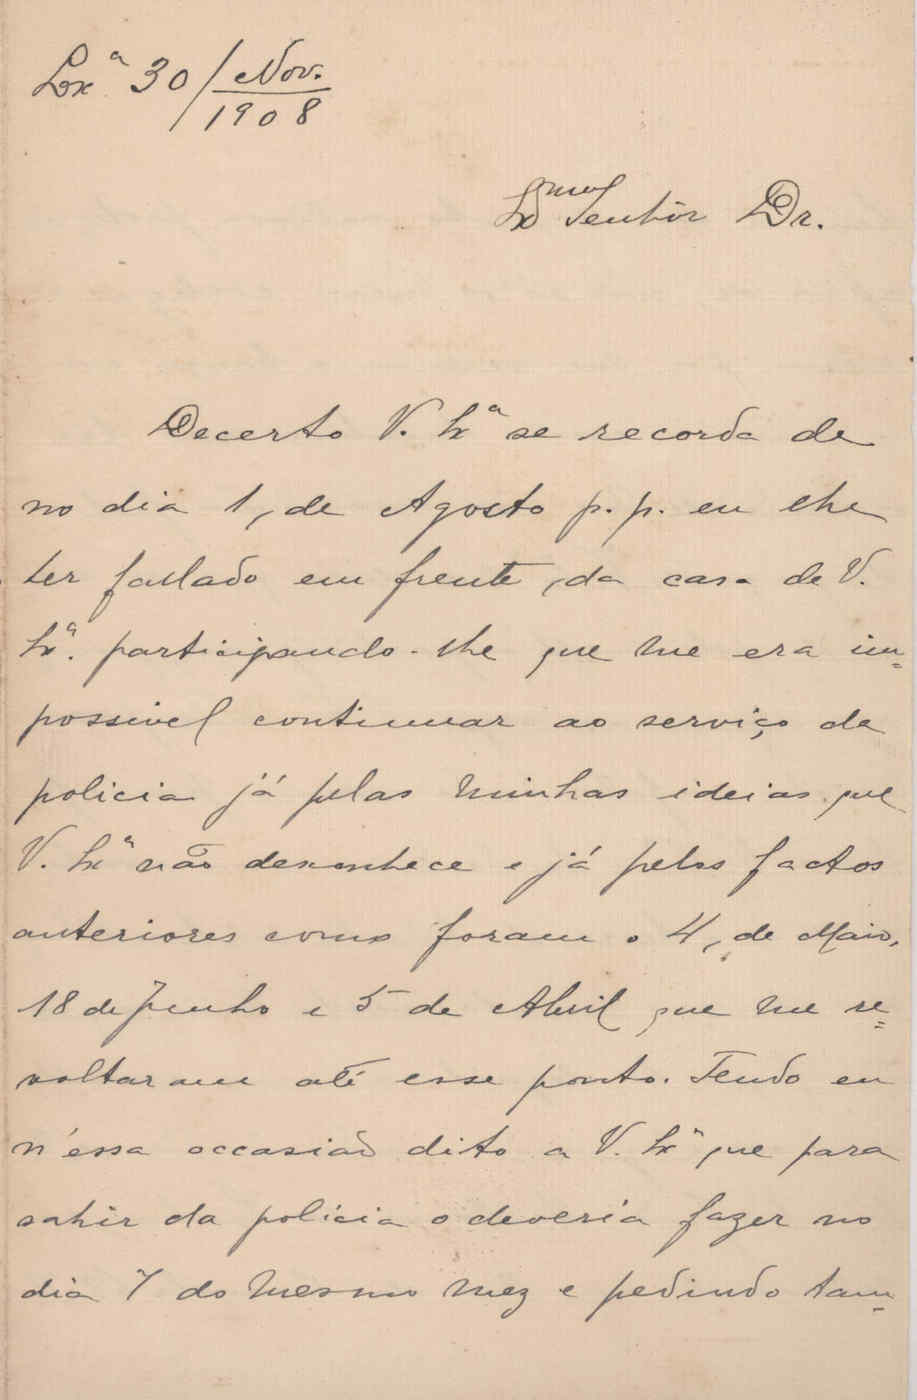 Lxª 30/Nov.
1908
Exmo Senhôr Dr.
Decerto V. Exª se recorda de
no dia 1, de Agosto p. p. eu lhe
ter fallado em frente, da casa de V.
Exª. participando-lhe que me era im=
possivel continuar ao serviço da
policia já pelas minhas ideias que
V. Exª não desconhece e já pelos factos
anteriores como foram o 4, de Maio,
18 de Junho e 5 de Abril que me re=
voltaram até esse ponto. Tendo eu
n'essa occasião dito a V. Exª que para
sahir da policia o deveria fazer no
dia 7 do mesmo mez e pedindo tam-